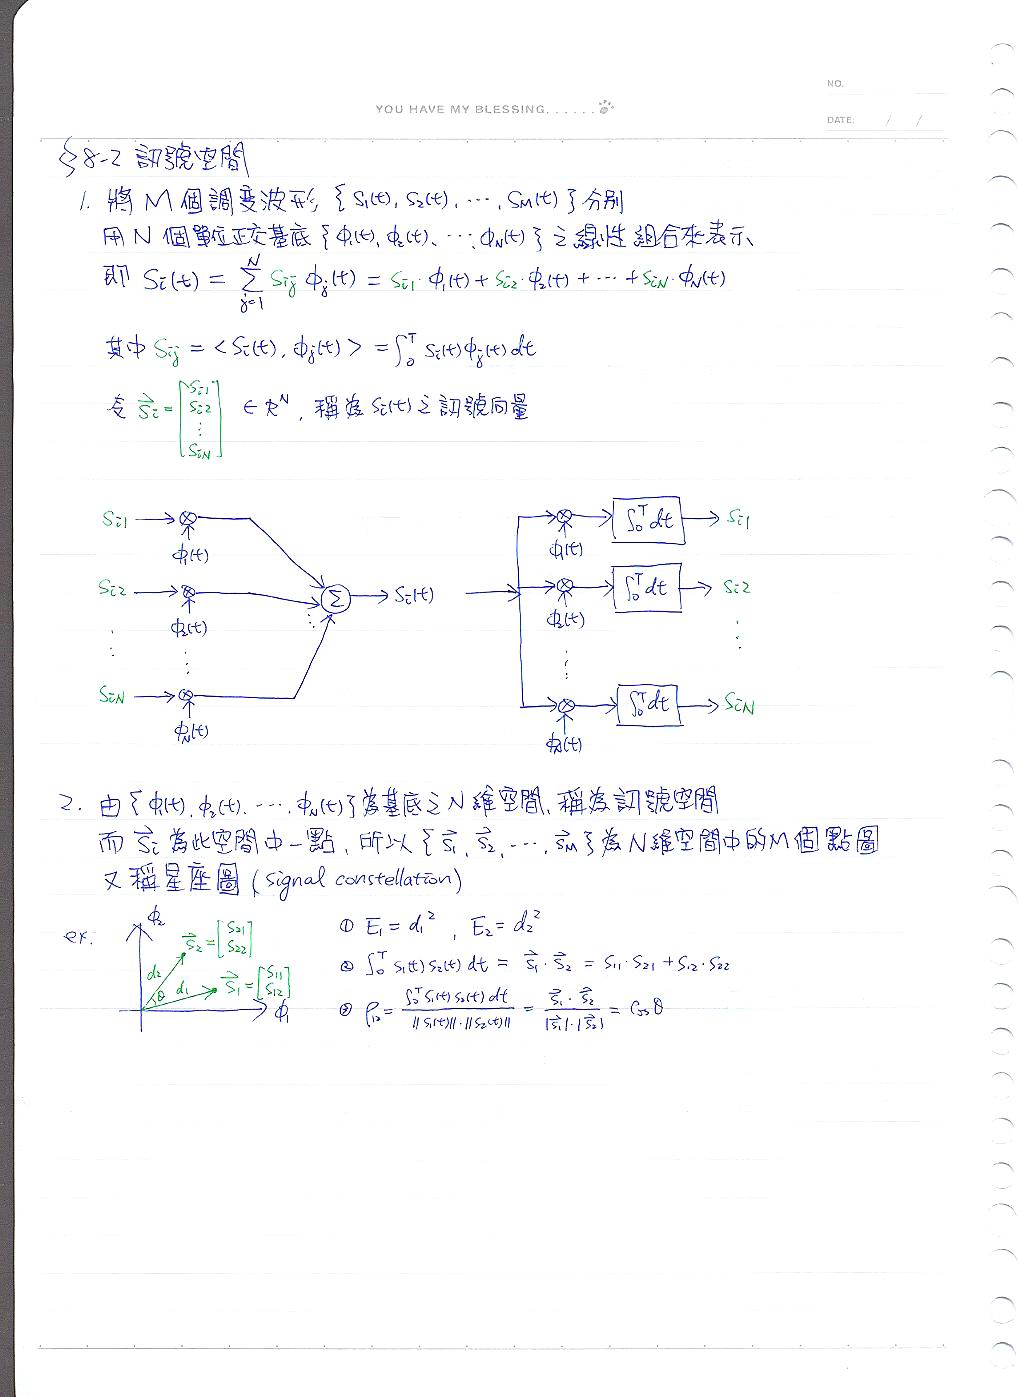 NO.
YOU HAVE MY BLESSING......
DATE: / /
§8-2 訊號空間
1. 將 M 個調變波形 {S₁(t), S₂(t), ⋯, S_M(t)} 分別
用 N 個單位正交基底 {ϕ₁(t), ϕ₂(t), ⋯, ϕ_N(t)} 之線性組合來表示、
即 Sᵢ(t) = ∑_{j=1}^{N} Sᵢⱼ ϕⱼ(t) = Sᵢ₁·ϕ₁(t) + Sᵢ₂·ϕ₂(t) + ⋯ + S_iN·ϕ_N(t)
其中 Sᵢⱼ = <Sᵢ(t), ϕⱼ(t)> = ∫₀ᵀ Sᵢ(t)ϕⱼ(t) dt
令 S⃗ᵢ = [Sᵢ₁ Sᵢ₂ ⋮ S_iN] ∈ Rᴺ, 稱為 Sᵢ(t) 之訊號向量
Sᵢ₁ → ⊗ ⊗ → ∫₀ᵀ dt → Sᵢ₁
ϕ₁(t) ϕ₁(t)
Sᵢ₂ → ⊗ Σ → Sᵢ(t) → ⊗ → ∫₀ᵀ dt → Sᵢ₂
ϕ₂(t) ϕ₂(t)
⋮ ⋮ ⋮ ⋮
S_iN → ⊗ ⊗ → ∫₀ᵀ dt → S_iN
ϕ_N(t) ϕ_N(t)
2. 由 {ϕ₁(t), ϕ₂(t), ⋯, ϕ_N(t)} 為基底之 N 維空間, 稱為訊號空間
而 S⃗ᵢ 為此空間中一點, 所以 {S⃗₁, S⃗₂, ⋯, S⃗_M} 為 N 維空間中的 M 個點圖
又稱星座圖 (signal constellation)
ex. ϕ₂ S⃗₂ = [S₂₁ S₂₂] d₂ θ d₁ S⃗₁ = [S₁₁ S₁₂] ϕ₁
① E₁ = d₁², E₂ = d₂²
② ∫₀ᵀ S₁(t) S₂(t) dt = S⃗₁·S⃗₂ = S₁₁·S₂₁ + S₁₂·S₂₂
③ ρ₁₂ = ∫₀ᵀ S₁(t) S₂(t) dt / ||S₁(t)||·||S₂(t)|| = S⃗₁·S⃗₂ / |S⃗₁|·|S⃗₂| = cosθ